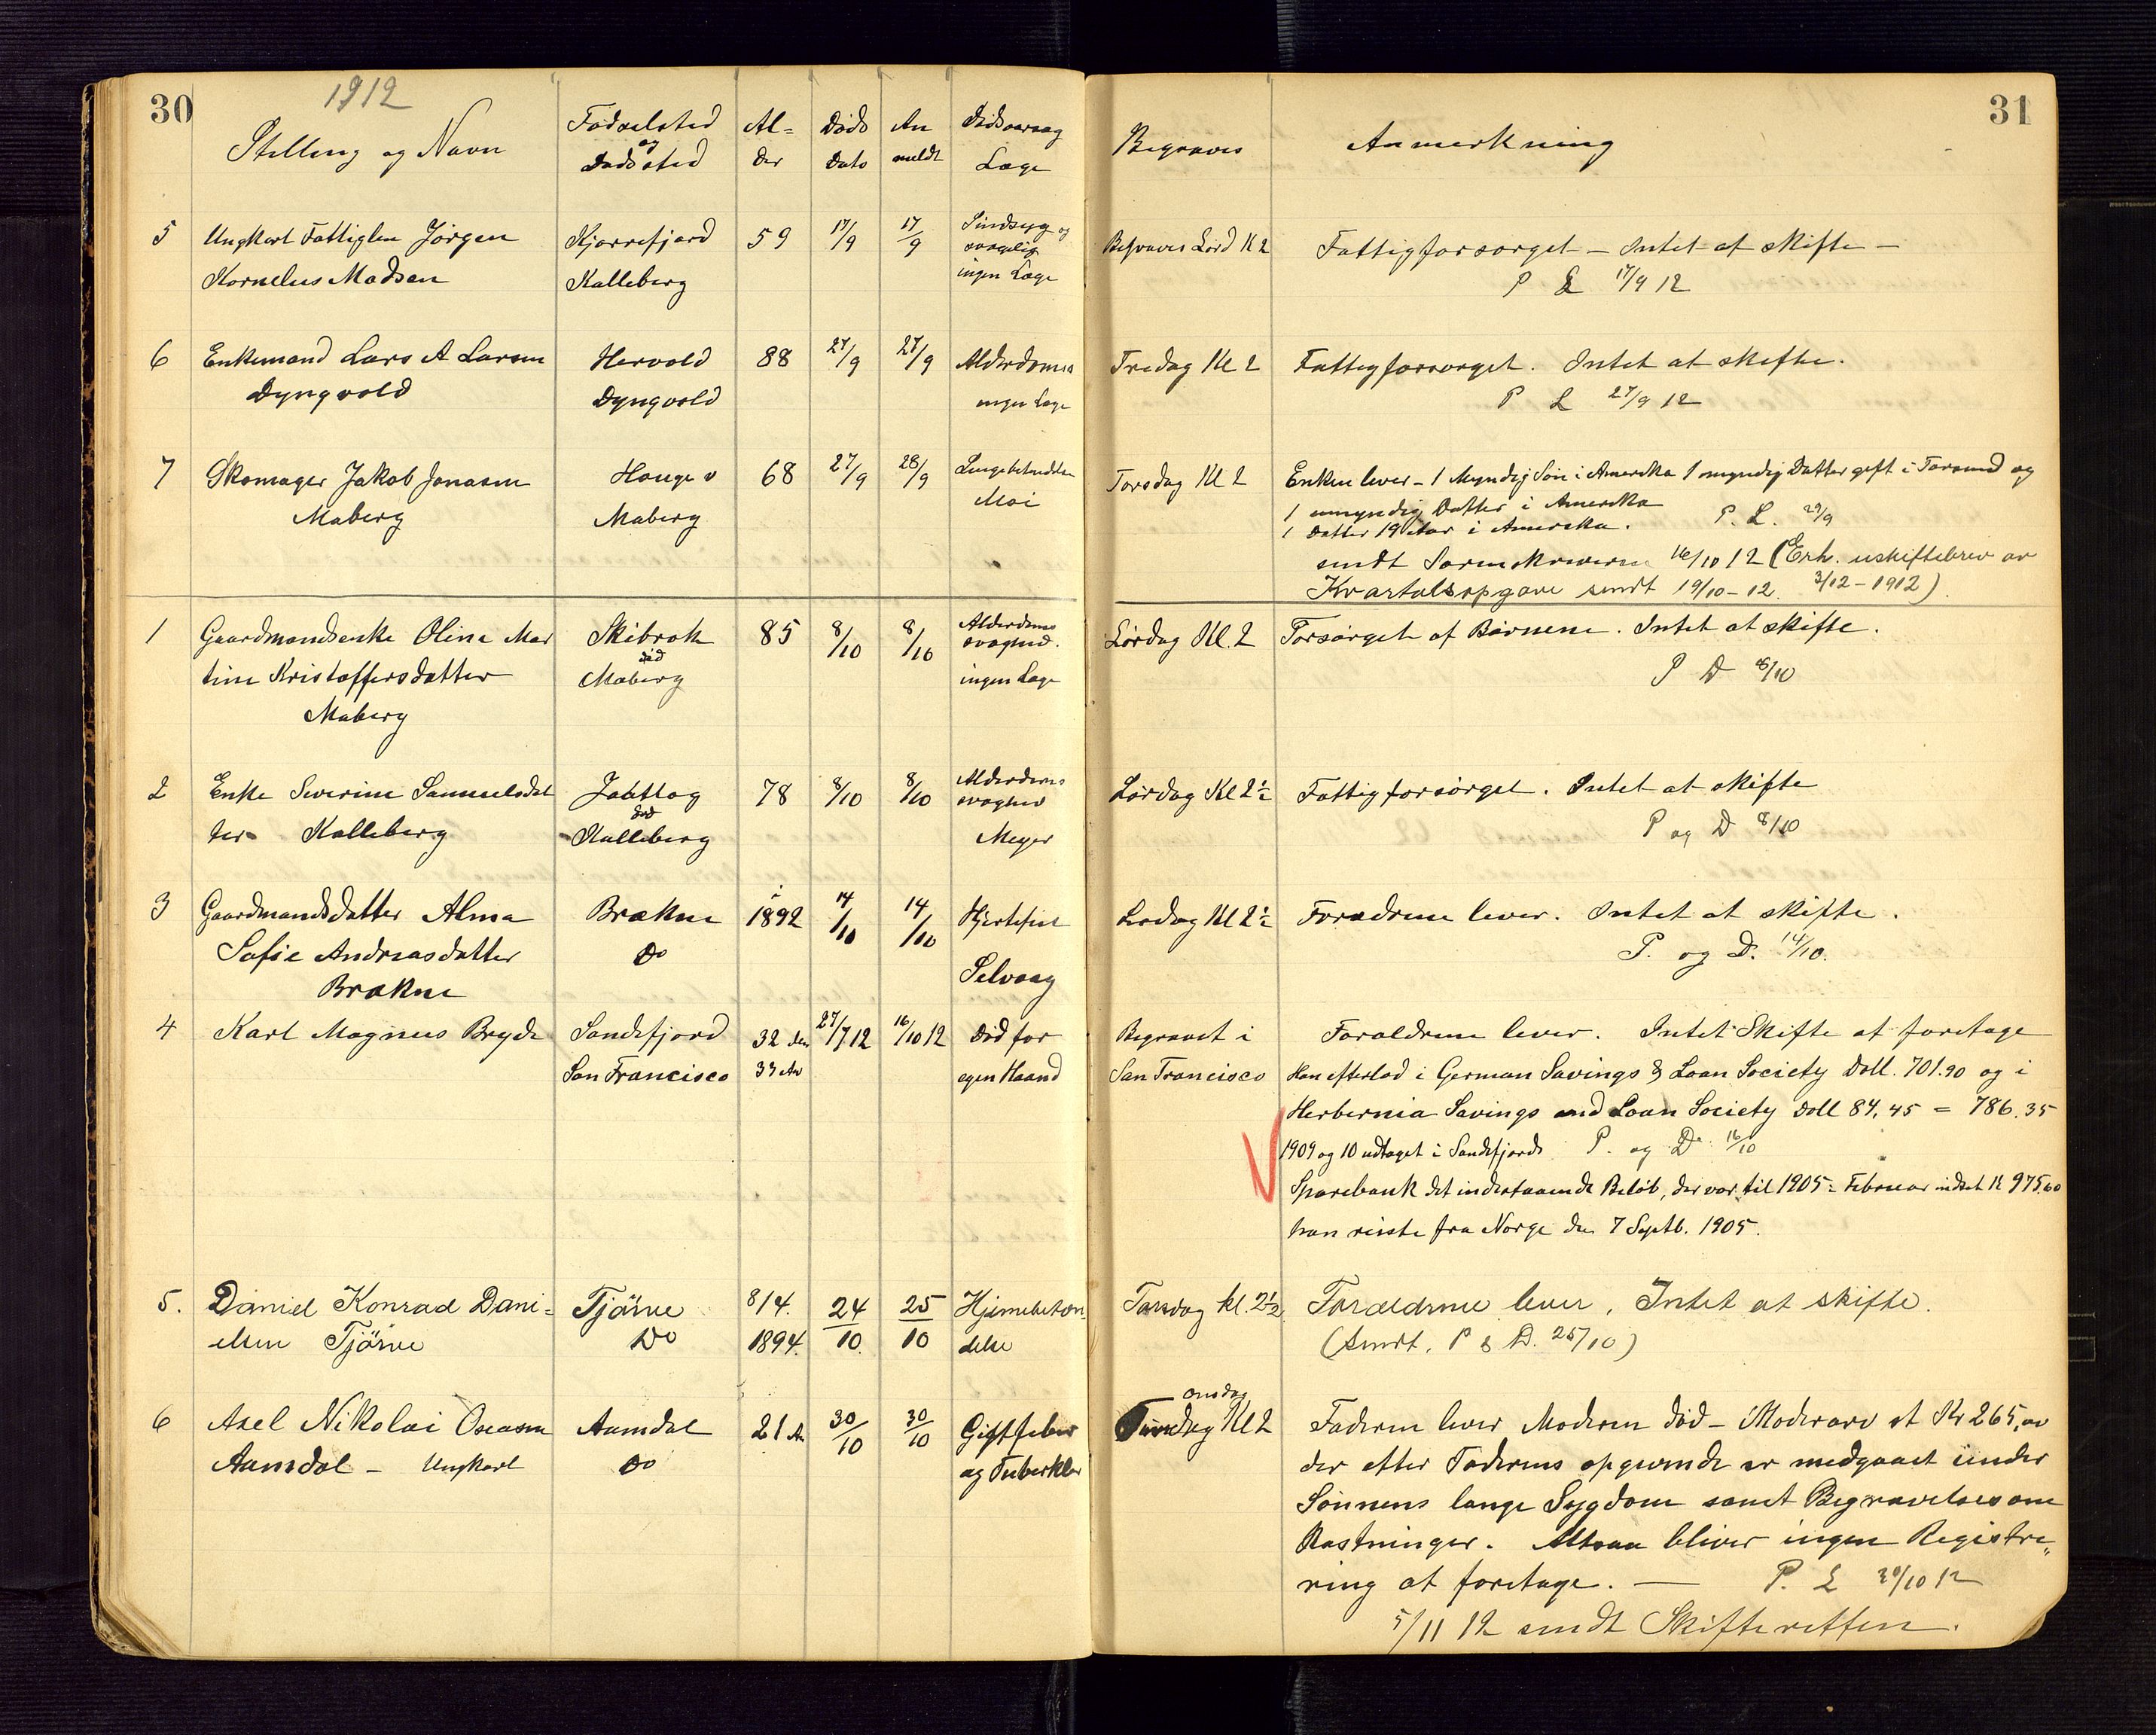 30
1912
Stilling og Navn
Fødselsted og Dødssted
Al= der
Døds Dato
An meldt
Dødsaarsag Læge
Begraves
Anmerkning
31
5 Ungkarl Fattiglem Jørgen Kjørrefjord 59 17/9 17/9 Sindssyg og Begraves Lørd Kl 2 Fattigforsørget – Intet at skifte –
Kornelius Madsen Kalleberg svagelig ingen Læge P L 17/9 12
6 Enkemand Lars A Larsen Hervold 88 27/9 27/9 Alderdoms Fredag Kl 2 Fattigforsørget. Intet at skifte.
Dyngvold Dyngvold ingen Læge P L 27/9 12
7 Skomager Jakob Jonasen Hauge v 68 27/9 28/9 Lungebetændelse Torsdag Kl 2 Enken lever – 1 Myndig Søn i Amerika 1 myndig Datter gift i Farsund og
Maberg Maberg Moi 1 umyndig Datter i Amerika P. L. 29/9
1 Datter 19 Aar i Amerika.
sendt Sorenskriveren 16/10 12 (Erh. uskiftebrev av
Kvartalsopgave sendt 19/10–12. 3/12–1912).
1 Gaardmandsenke Oline Mar Skibrok 85 8/10 8/10 Alderdoms Lørdag Kl. 2 Forsørget af Børnene. Intet at skifte.
tine Kristoffersdatter død Maberg svaghed. ingen Læge P D 8/10
Maberg
2 Enke Severine Samuelsdat 78 8/10 8/10 Alderdoms Lørdag Kl 2½ Fattigforsørget. Intet at skifte
ter Kalleberg død Kalleberg svaghed Meyer P og D 8/10
3 Gaardmandsdatter Alma Brækne i 1892 14/10 14/10 Hjertefeil Lødag Kl 2½ Forædrene lever. Intet at skifte.
Sofie Andreasdatter Do Selvaag P. og D. 14/10.
Brækne
4 Karl Magnus Bryde Sandefjord 32 den 27/7 12 16/10 12 Død for Begravet i Foraldrene lever. Intet Skifte at foretage
San Francisco 33 Aar egen Haand San Francisco Han efterlod i German Savings & Loan Society Doll. 701.90 og i
Herbernia Savings and Loan Society Doll 84,45 = 786.35
1909 og 10 udtaget i Sandefjords P. og D. 16/10
Sparebank det indestaaende Beløb, der var til 1905 = Februar indsat K 975,60
han reiste fra Norge den 7 Septb. 1905.
5. Daniel Konrad Dani= Tjørve 8/4. 24/10. 25/10 Hjernebetæn= Torsdag kl. 2½ Forældrene lever, Intet at skifte.
elsen Tjørve Do 1894. delse (Sendt, P & D. 25/10)
6 Axel Nikolai Oseasen Aamdal 21 Aar 30/10 30/10 Giftfeber onsdag Kl 2 Faderen lever Moderen død – Møderarv et Kr 265,oo
Aamdal – Ungkarl Do og Tuberkler der efter Faderens opgivende er medgaaet under
Sønnens lange Sygdom samt Begravelsesom
kostninger. Altsaa bliver ingen Registre„
ring at foretage. — P. L 30/10 12
5/11 12 sendt Skifteretten.